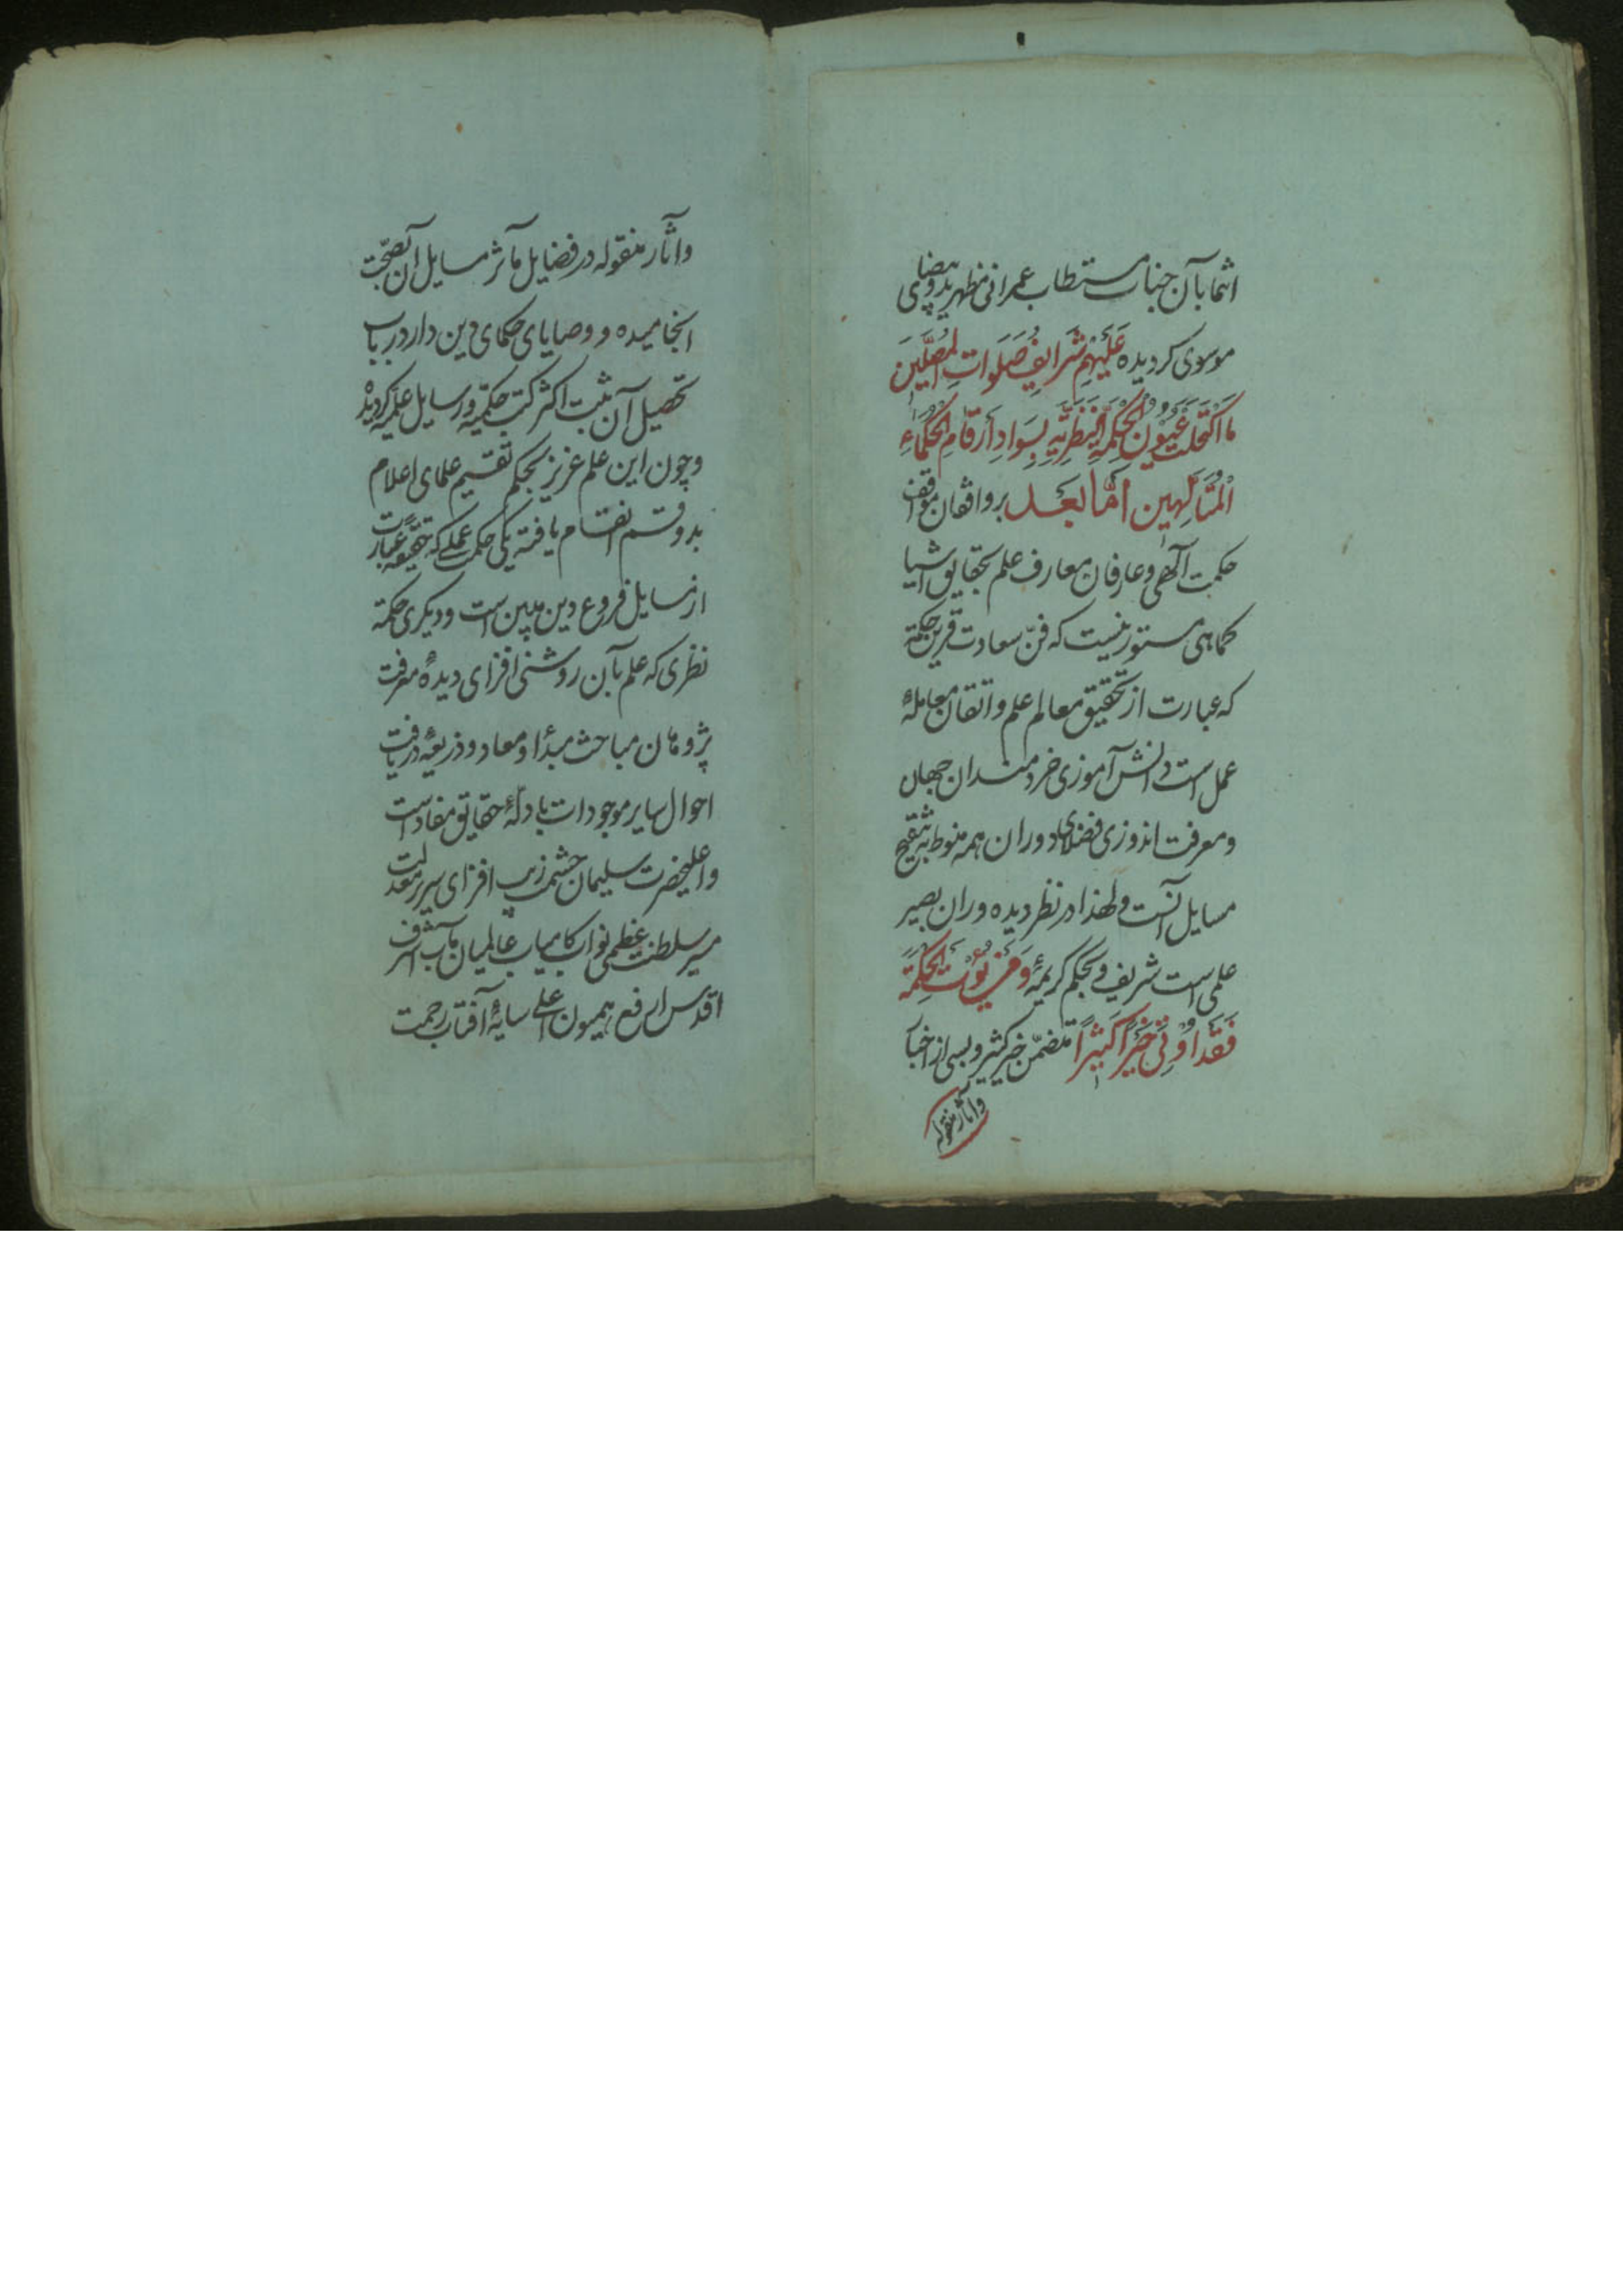 انتما بآن جناب مستطاب عمرانی مظهر ید و بیضای
موسوی کردیده عَلَیْهِم شَرایِفُ صَلَواتِ المُصَلّینَ
ما اکْتَحَلَتْ عُیُونُ الحِکْمَةِ النَّظَرِیَّةِ بِسَوادِ اَرقامِ الحُکَماءِ
المُتَاَلِّهین اَمّا بَعد بر واقفان مواقف
حکمت آلهی و عارفان معارف علم بحقایق اشیا
کماهی مستور نیست که فنّ سعادت قرین حکمة
که عبارت از تحقیق معالم علم و اتقان معاملهٔ
عمل است دانش آموزی خردمندان جهان
و معرفت اندوزی فضلای دوران همه منوط به تنقیح
مسایل آنست ولهذا در نظر دیده وران بصیر
علمی است شریف و بحکم کریمهٔ وَمَن یُؤتَ الحِکْمَةَ
فَقَد اُوتِیَ خَیْراً کَثیراً متضمّن خیر کثیر و بسی از اخبار
و آثار منقوله
و اثار منقوله در فضایل مآثر مسایل آن بصحّت
انجامیده و وصایای حکمای دین دار در باب
تحصیل آن مثبت اکثر کتب حکمیّه و رسایل علمیّه کردیده
و چون این علم عزیز بحکم تقسیم علمای اعلام
بدو قسم انقسام یافته یکی حکمت عملی که حقیقة عبارت
از مسایل فروع دین مبین است و دیکری حکمة
نظری که علم بآن روشنی افزای دیدهٔ معرفت
پژوهان مباحث مبدأ و معاد و ذریعهٔ دریافت
احوال سایر موجودات بادلّهٔ حقایق مفاد است
و اعلیحضرت سلیمان حشمت زیب افزای سریر معدلت
سیر سلطنت عظمی نواب کامیاب عالمیان مآب اشرف
اقدس ارفع همیون اعلی سایهٔ آفتاب رحمت